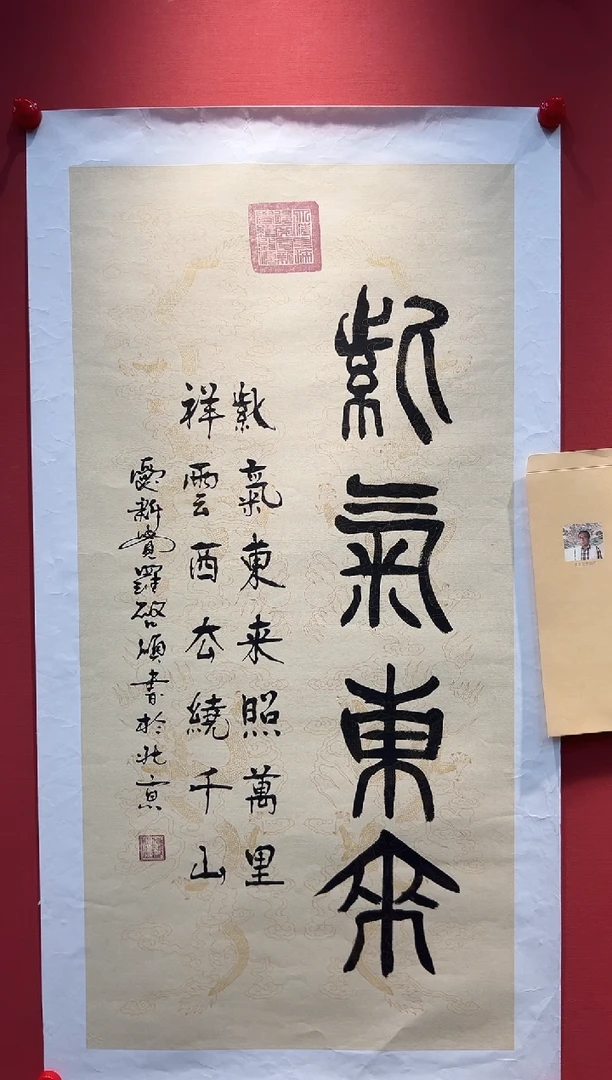 紫氣東來
紫氣東来照萬里
祥雲西去繞千山
愛新覺羅啓頎書於北京